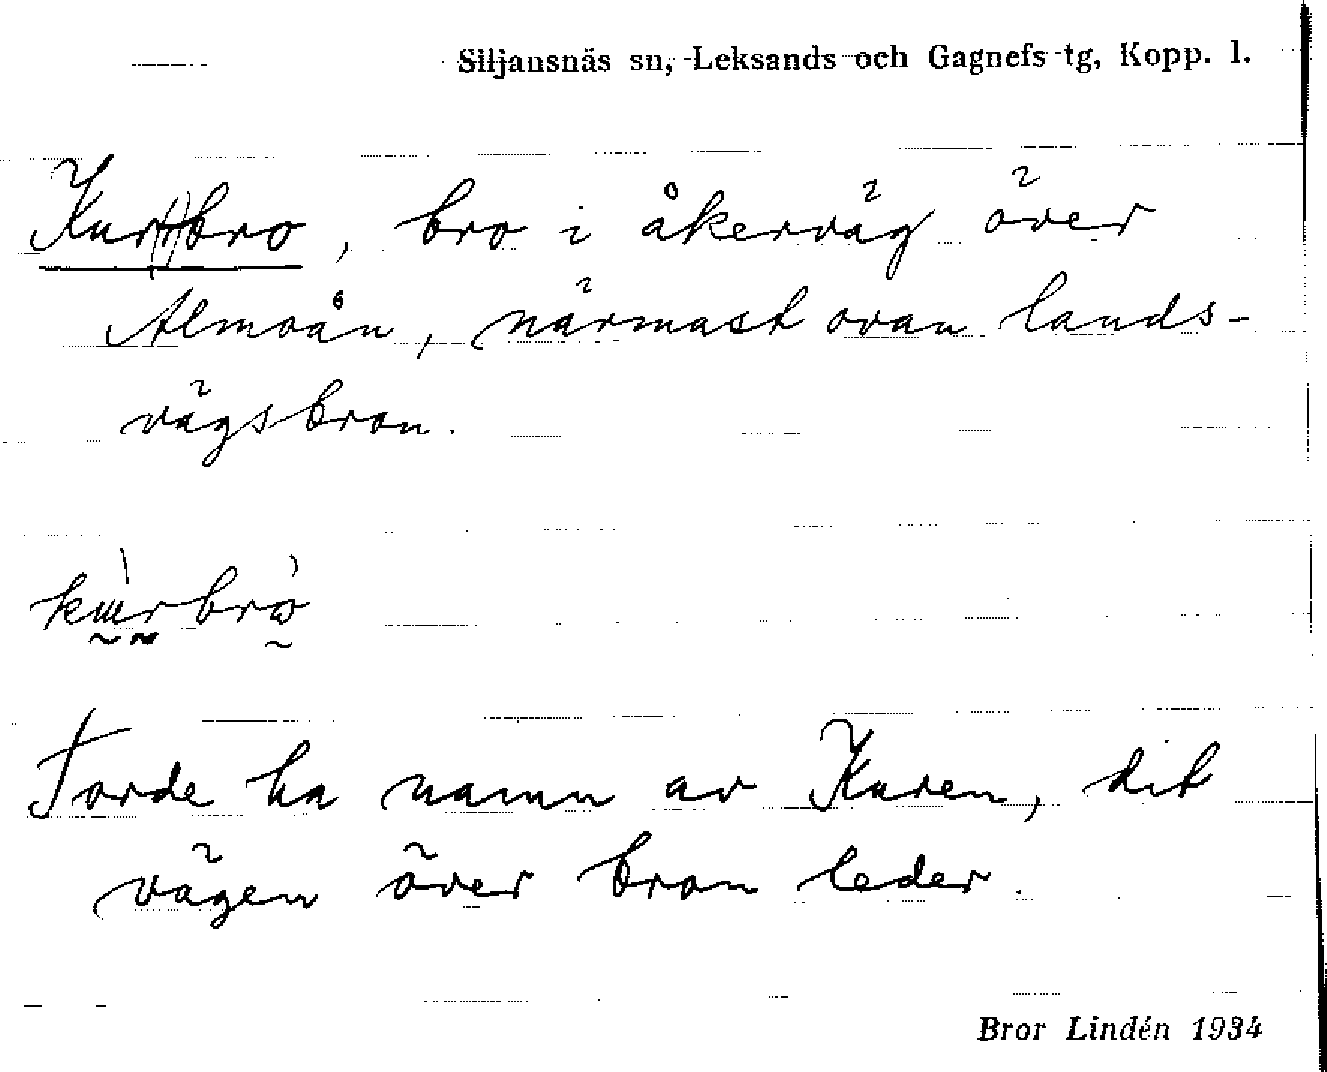 Siljansnäs sn, Leksands och Gagnefs tg, Kopp. l.
Kur(r)bro, bro i åkerväg över
Almoån, närmast ovan lands-
vägsbron.
Torde ha namn av Kuren, dit
vägen över bron leder.
Bror Lindén 1934